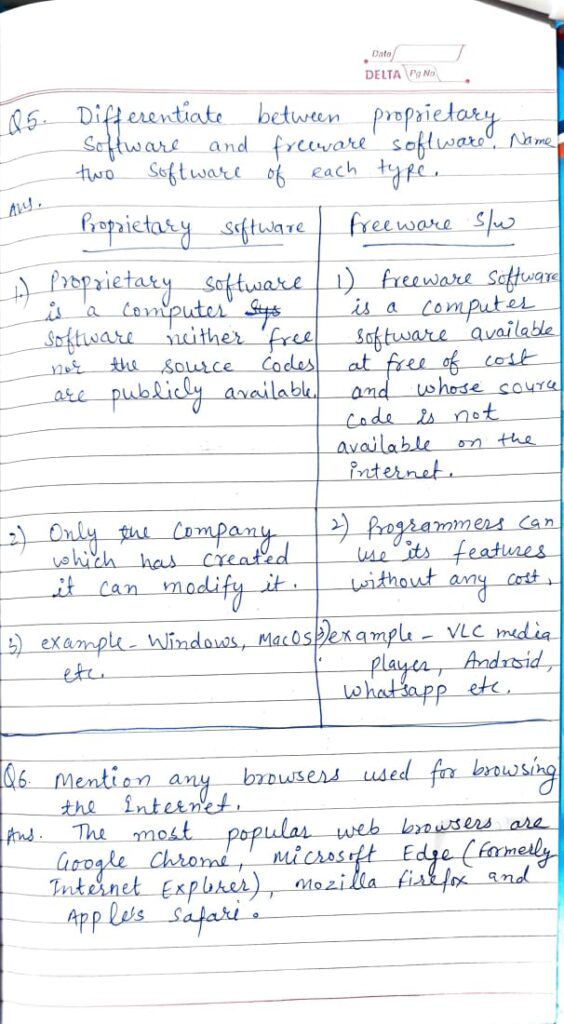 Date
DELTA Pg No
Q5. Differentiate between proprietary
Software and freeware software. Name
two Software of each type.
Ans.
Proprietary software
1) Proprietary software
is a computer Sys
software neither free
nor the source codes
are publicly available.
2) Only the company
which has created
it can modify it.
3) example - Windows, MacOS
etc.
freeware s/w
1) freeware software
is a computer
software available
at free of cost
and whose source
code is not
available on the
internet.
2) Programmers can
use its features
without any cost.
3) example - VLC media
player, Android,
whatsapp etc.
Q6. Mention any browsers used for browsing
the Internet.
Ans. The most popular web browsers are
Google Chrome, Microsoft Edge (formerly
Internet Explorer), mozilla firefox and
Apple's Safari.